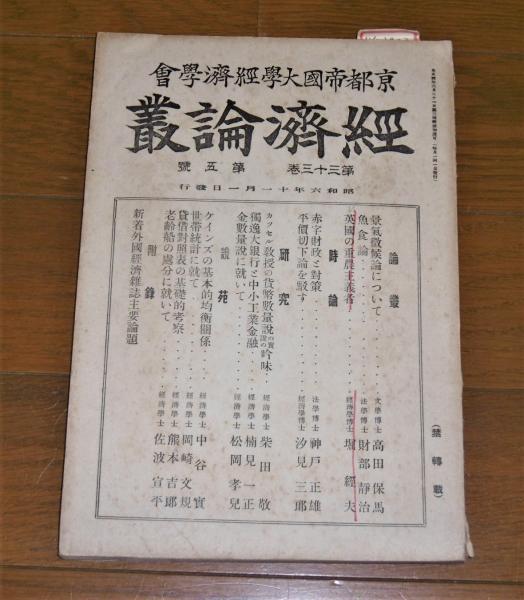 京都帝國大學經濟學會
經濟論叢
第三十三卷 第五號
昭和六年十一月一日發行
論叢
景氣徵候論について 文學博士 高田保馬
魚食論 法學博士 財部靜治
英國の重農主義者 經濟學博士 堀經夫
時論
赤字財政と對策 法學博士 神戸正雄
平價切下論を駁す 經濟學博士 汐見三郎
研究
カッセル教授の貨幣數量說の實證的吟味 經濟學士 柴田敬
獨逸大銀行と中小工業金融 經濟學士 楠見一正
金數量說に就いて 經濟學士 松岡孝兒
說苑
ケインズの基本的均衡關係 經濟學士 中谷實
世帶統計に就て 經濟學士 岡崎文規
貸借對照表の基礎的考察 經濟學士 熊本吉郎
老齡船の處分に就いて 經濟學士 佐波宣平
附錄
新着外國經濟雜誌主要論題
(禁轉載)